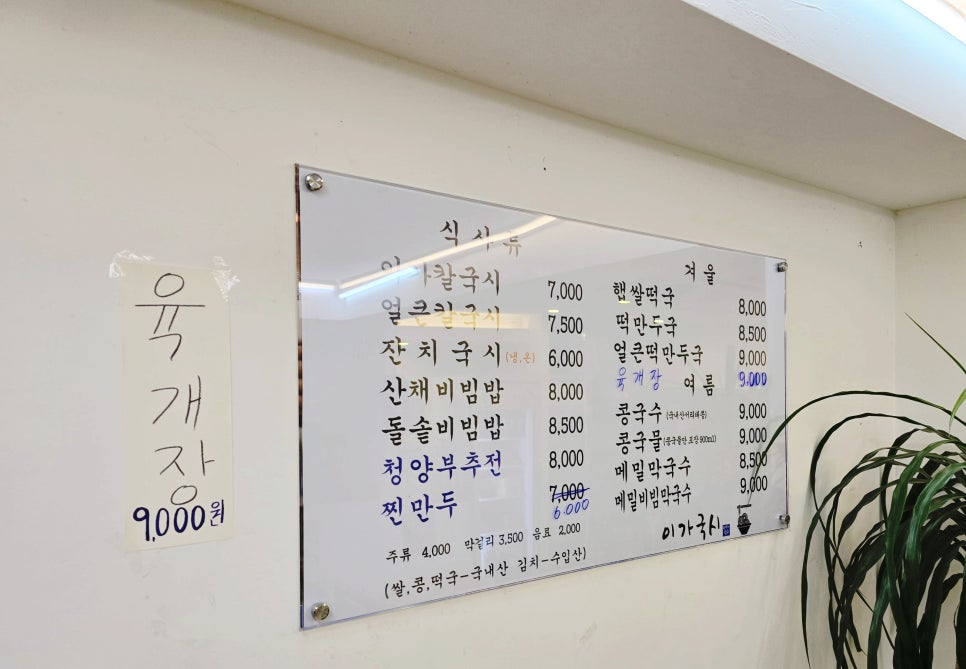 육개장
9,000원
식사류
이가칼국시 7,000
얼큰칼국시 7,500
잔치국시 (냉,온) 6,000
산채비빔밥 8,000
돌솥비빔밥 8,500
청양부추전 8,000
찐만두 7,000 6.000
주류 4,000 막걸리 3,500 음료 2,000
(쌀,콩,떡국-국내산 김치-수입산)
겨울
햅쌀떡국 8,000
떡만두국 8,500
얼큰떡만두국 9,000
육개장 9.000
여름
콩국수 (국내산서리태콩) 9,000
콩국물 (콩국물만 포장 900ml) 9,000
메밀막국수 8,500
메밀비빔막국수 9,000
이가국시